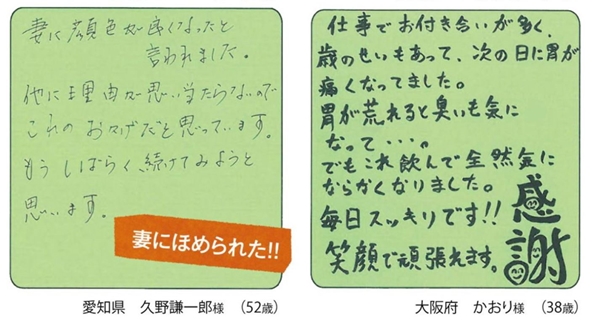 妻に顔色が良くなったと
言われました。
他に理由が思い当たらないので
これのおかげだと思っています。
もうしばらく続けてみようと
思います。
妻にほめられた!!
愛知県 久野謙一郎様 (52歳)
仕事でお付き合いが多く、
歳のせいもあって、次の日に胃が
痛くなってました。
胃が荒れると臭いも気に
なって・・・。
でもこれ飲んで全然気に
ならなくなりました。
毎日スッキリです!!
笑顔で頑張れます。
感謝
大阪府 かおり様 (38歳)